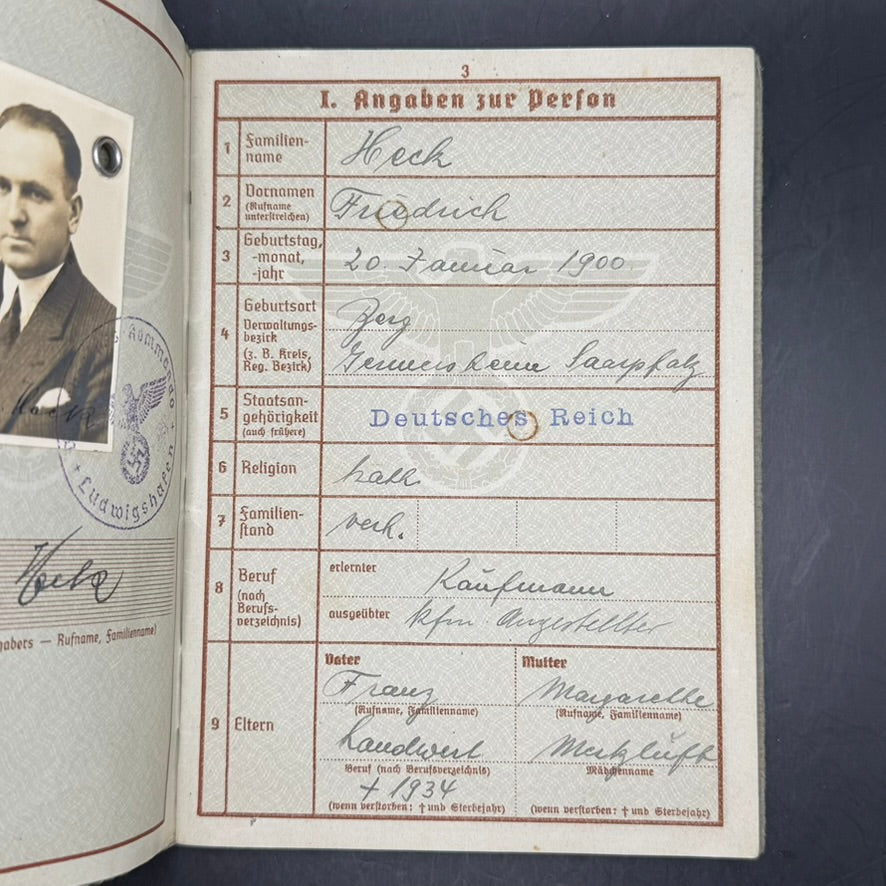 Ludwigshafen
Heck
— Rufname, Familienname)
3
I. Angaben zur Person
1 Familien-
name
Heck
2 Vornamen
(Rufname
unterstreichen)
Friedrich
3 Geburtstag,
-monat,
-jahr
20. Januar 1900
4 Geburtsort
Verwaltungs-
bezirk
(z. B. Kreis,
Reg. Bezirk)
Berg
Germersheim Saarpfalz
5 Staatsan-
gehörigkeit
(auch frühere)
Deutsches Reich
6 Religion
kath.
7 Familien-
stand
verh.
8 Beruf
(nach
Berufs-
verzeichnis)
erlernter
Kaufmann
ausgeübter
kfm. Angestellter
9 Eltern
Vater
Franz
(Rufname, Familienname)
Landwirt
Beruf (nach Berufsverzeichnis)
† 1934
(wenn verstorben: † und Sterbejahr)
Mutter
Margarethe
(Rufname, Familienname)
Metzluft
Mädchenname
(wenn verstorben: † und Sterbejahr)